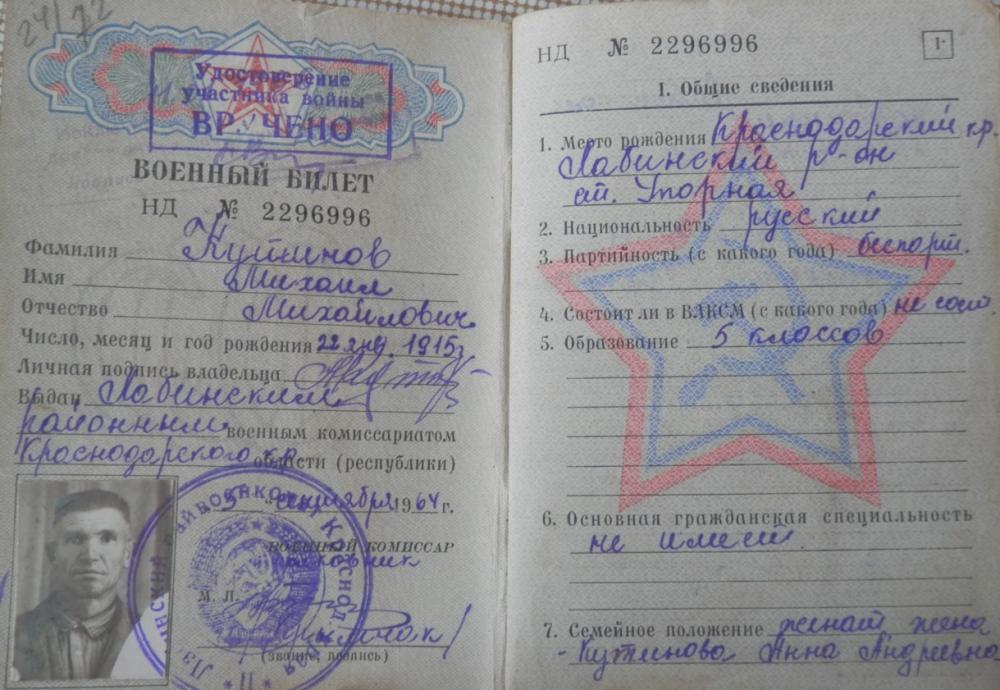 24/72
Удостоверение
участника войны
ВРУЧЕНО
ВОЕННЫЙ БИЛЕТ
НД № 2296996
Фамилия Кутинов
Имя Михаил
Отчество Михайлович
Число, месяц и год рождения 22 янв. 1915 г.
Личная подпись владельца
Выдан Лабинским
районным военным комиссариатом
Краснодарского кр. области (республики)
5 сентября 1964 г.
ВОЕННЫЙ КОМИССАР
полковник
М. П.
(звание, подпись)
НД № 2296996
1
I. Общие сведения
1. Место рождения Краснодарский кр.
Лабинский р-он
ст. Упорная
2. Национальность русский
3. Партийность (с какого года) беспарт.
4. Состоит ли в ВЛКСМ (с какого года) не сост.
5. Образование 5 классов
6. Основная гражданская специальность
не имеет.
7. Семейное положение женат жена
- Кутинова Анна Андреевна